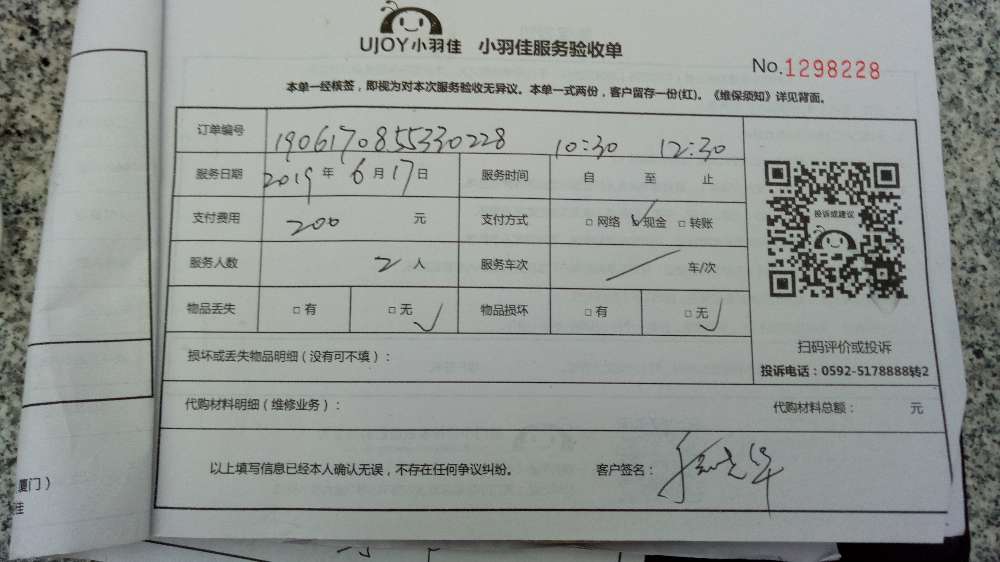 UJOY小羽佳 小羽佳服务验收单
No.1298228
本单一经核签，即视为对本次服务验收无异议。本单一式两份，客户留存一份(红)。《维保须知》详见背面。
订单编号 1906170855330228 10:30 12:30
服务日期 2019年6月17日 服务时间 自 至 止
支付费用 200 元 支付方式 □网络 ☑现金 □转账
服务人数 2人 服务车次 / 车/次
物品丢失 □有 □无 ✓ 物品损坏 □有 □无 ✓
投诉或建议
扫码评价或投诉
投诉电话：0592-5178888转2
损坏或丢失物品明细（没有可不填）：
代购材料明细（维修业务）： 代购材料总额： 元
以上填写信息已经本人确认无误，不存在任何争议纠纷。 客户签名：
厦门）
佳